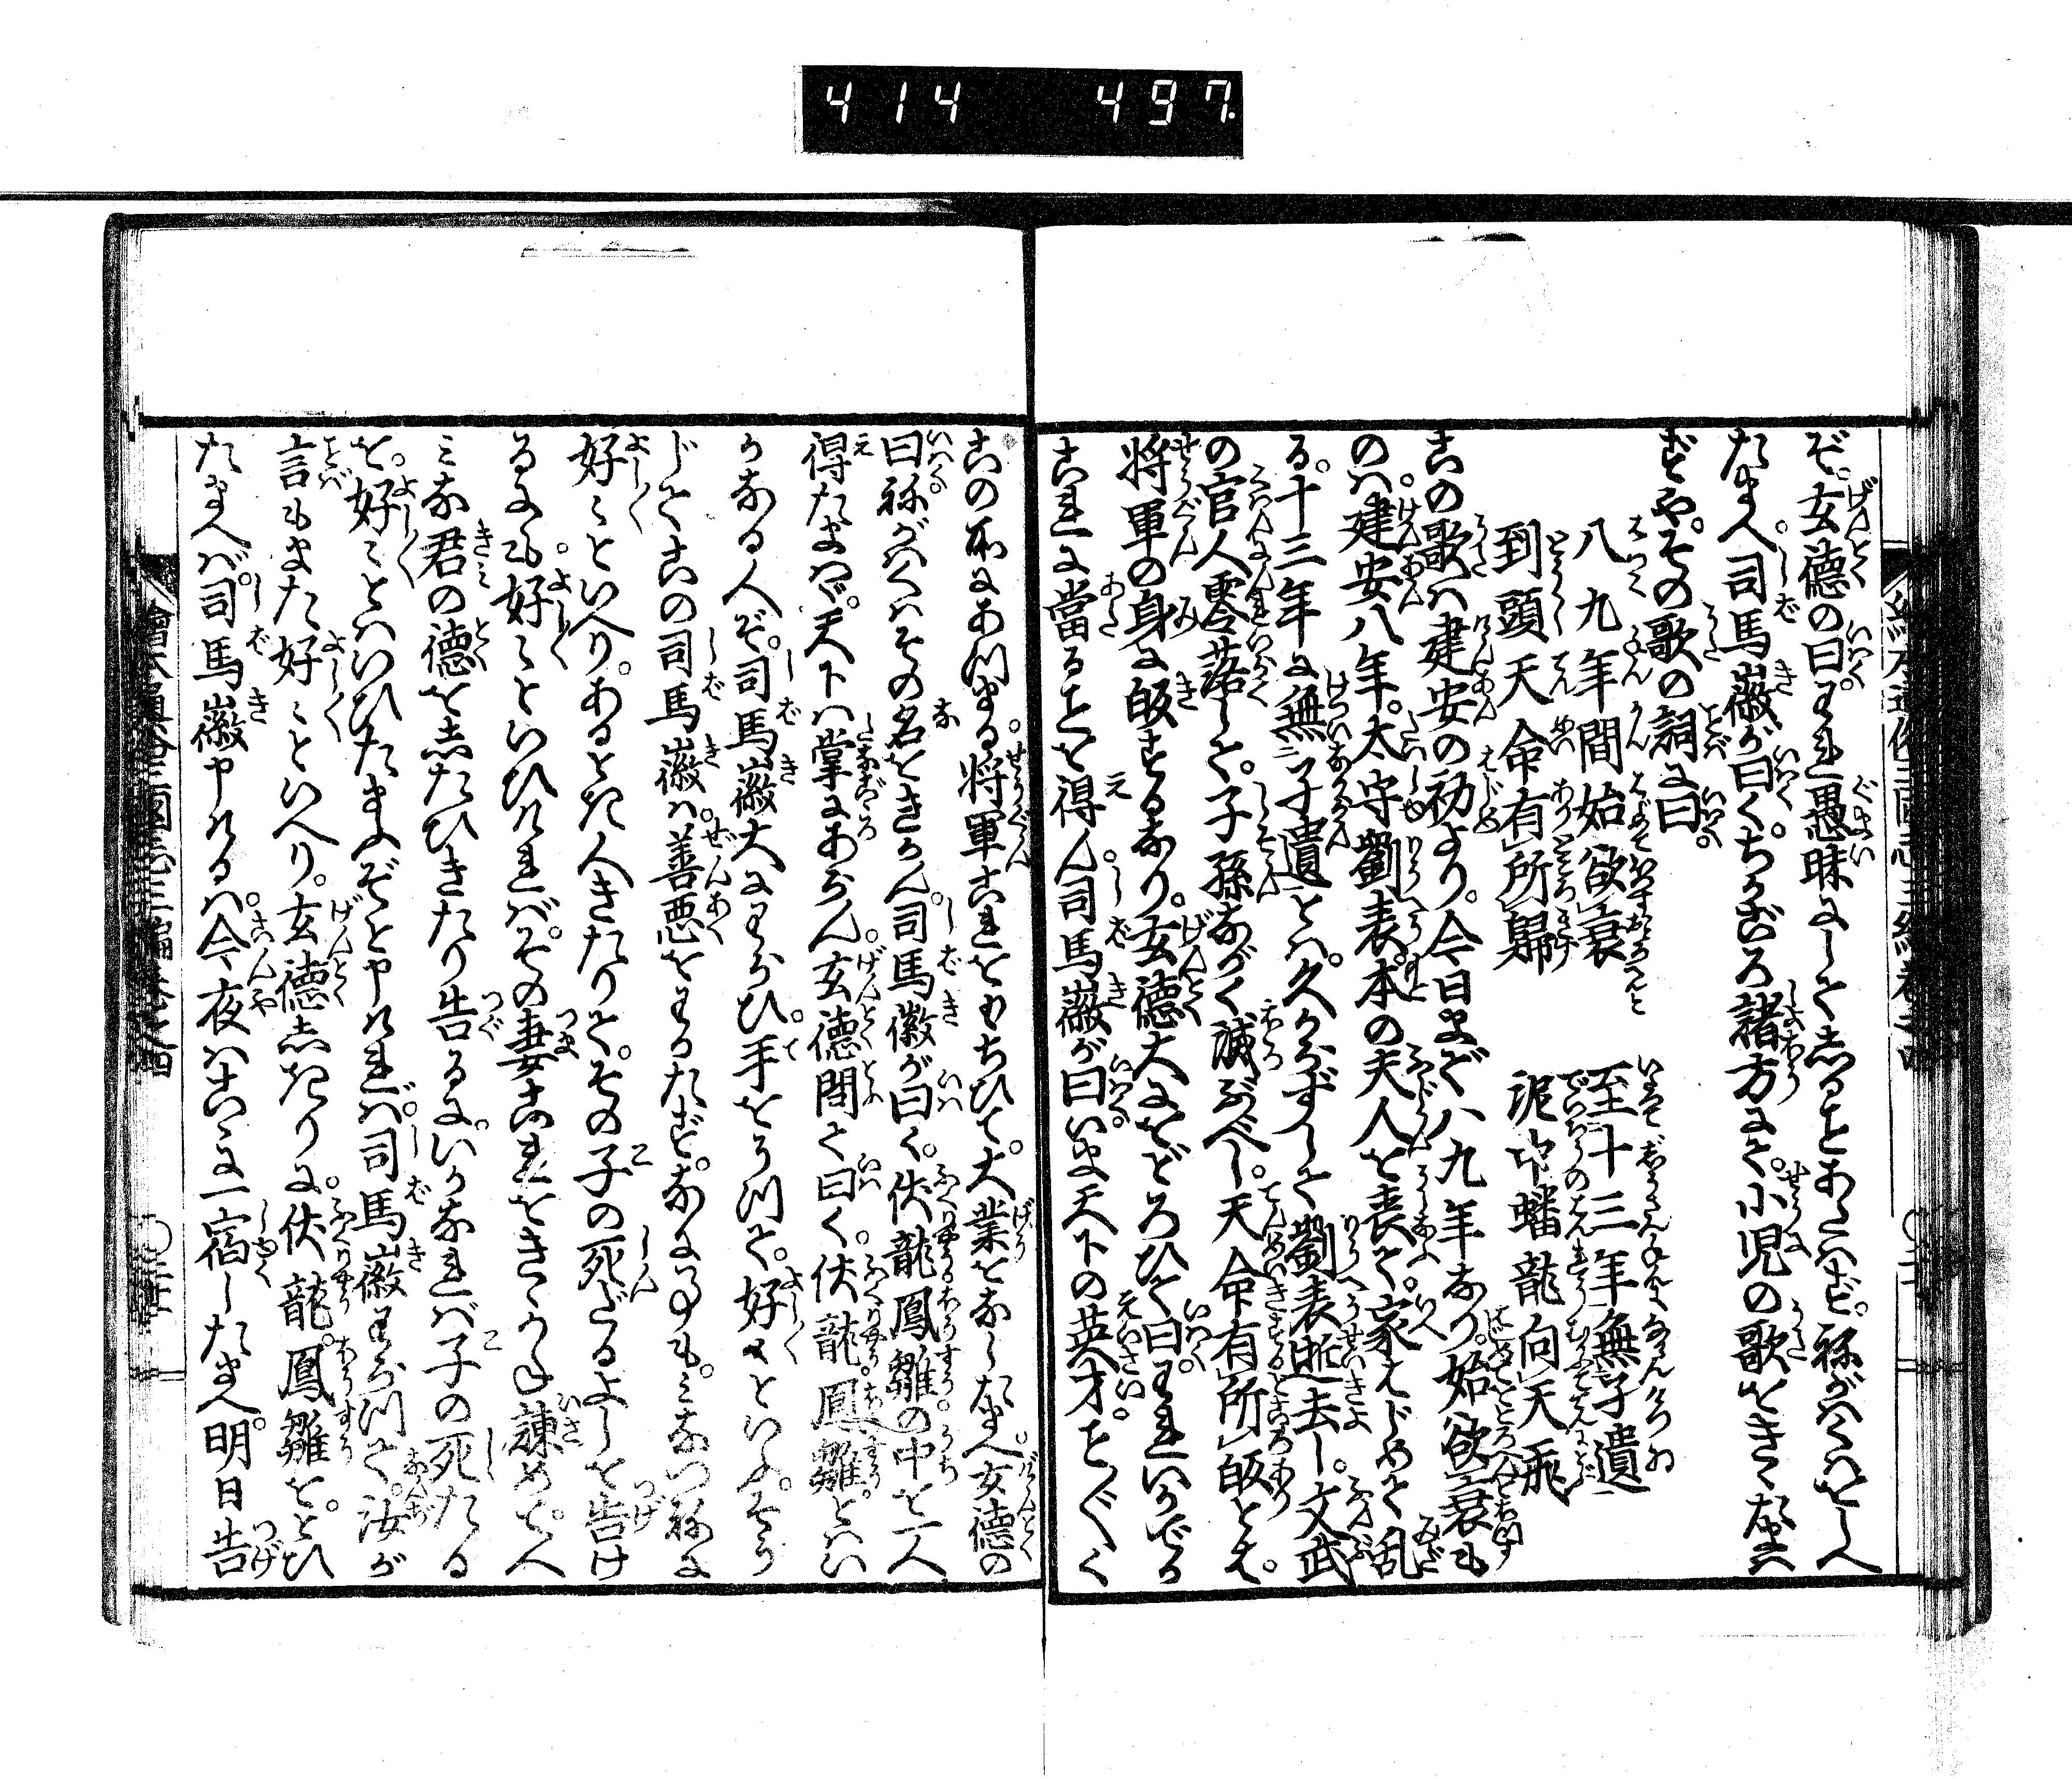 414 497.
ぞ。玄德の曰。われ愚昧にしてしることあたはず。ねがはくはをしへ
たまへ。司馬徽が曰く。ちかごろ諸方にて。小児の歌をきゝたまは
ずや。その歌の詞に曰。
八九年間始欲衰 至十三年無子遺
到頭天命有所歸 泥中蟠龍向天飛
この歌は建安の初より。今日まで八九年なり。始欲衰も
のは。建安八年。太守劉表。本の夫人を喪て。家はじめて乱
る。十三年に無子遺とは。久からずして劉表逝去し。文武
の官人零落して。子孫ながく滅ぶべし。天命有所皈とは。
将軍の身に皈するなり。玄德大におどろひて曰。われいかでか
これに當ることを得ん。司馬徽が曰。いま天下の英才。こと〲く
この所にあつまる。将軍これをもちひて。大業をなしたまへ。玄德の
曰。ねがはくはその名をきかん。司馬徽が曰く。伏龍鳳雛の中を一人
得たまはゞ。天下は掌にあらん。玄德問て曰く。伏龍。鳳雛。とはい
かなる人ぞ。司馬徽大にわらひ。手をうつて。好々といふ。そも
じてこの司馬徽は。善悪をわかたず。なに事も。みなつねに
好々といへり。あるとき人きたりて。その子の死だるよしを告け
るにも。好々といひければ。その妻これをきゝかね諫めて。人
みな君の德をしたひきたり告るに。いかなれば子の死たる
を。好々とはいひたまふぞと申ければ。司馬徽わらつて。汝が
言もまた好々といへり。玄德しきりに。伏龍。鳳雛を。とひ
たまへば。司馬徽申けるは。今夜はこゝに一宿したまへ。明日告